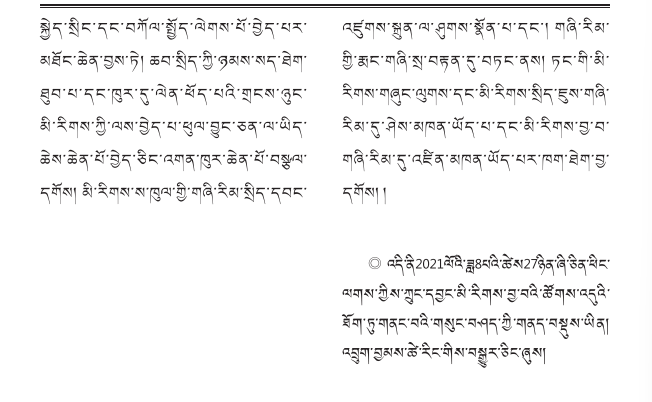 སྐྱེད་སྲིང་དང་བཀོལ་སྤྱོད་ལེགས་པོ་བྱེད་པར་
མཐོང་ཆེན་བྱས་ཏེ། ཆབ་སྲིད་ཀྱི་ཉམས་སད་ཐེག་
ཐུབ་པ་དང་ཁུར་དུ་ལེན་ཕོད་པའི་གྲངས་ཉུང་
མི་རིགས་ཀྱི་ལས་བྱེད་པ་ཕུལ་བྱུང་ཅན་ལ་ཡིད་
ཆེས་ཆེན་པོ་བྱེད་ཅིང་འགན་ཁུར་ཆེན་པོ་བསྩལ་
དགོས། མི་རིགས་ས་ཁུལ་གྱི་གཞི་རིམ་སྲིད་དབང་
འཛུགས་སྐྲུན་ལ་ཤུགས་སྣོན་པ་དང་། གཞི་རིམ་
གྱི་རྨང་གཞི་སྲ་བརྟན་དུ་བཏང་ནས། ཏང་གི་མི་
རིགས་གཞུང་ལུགས་དང་མི་རིགས་སྲིད་ཇུས་གཞི་
རིམ་དུ་ཤེས་མཁན་ཡོད་པ་དང་མི་རིགས་བྱ་བ་
གཞི་རིམ་དུ་འཛིན་མཁན་ཡོད་པར་ཁག་ཐེག་བྱ་
དགོས། །
◎ འདི་ནི2021ལོའི་ཟླ8པའི་ཚེས27ཉིན་ཞི་ཅིན་ཕིང་
ལགས་ཀྱིས་ཀྲུང་དབྱང་མི་རིགས་བྱ་བའི་ཚོགས་འདུའི་
ཐོག་ཏུ་གནང་བའི་གསུང་བཤད་ཀྱི་གནད་བསྡུས་ཡིན།
འབྲུག་བྱམས་ཚེ་རིང་གིས་བསྒྱུར་ཅིང་ཞུས།